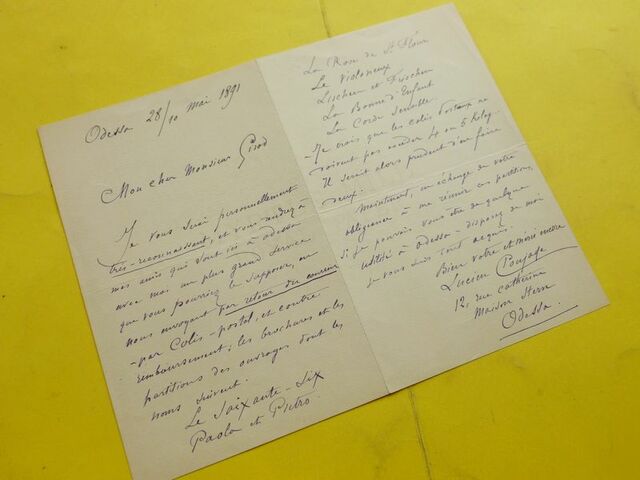 Odessa 28/10 mai 1891
Mon cher Monsieur Girod
Je vous serai personnellement
très-reconnaissant, et vous rendrez à
mes amis qui sont ici à Odessa
avec moi un plus grand service
que vous pourriez le supposer, en
nous envoyant par retour du courrier
- par Colis-postal, et contre
remboursement; les brochures et les
partitions des ouvrages dont les
noms suivent.
Le Soixante-Six
Paolo et Pietro.
La Rose de St Flour
Le Violoneux
Lischen et Fritzchen
La Bonne d'Enfant
La Corde sensible
- Je crois que les colis postaux ne
doivent pas excéder 4 ou 5 kilog-
Il serait alors prudent d'en faire
deux.
Maintenant, en échange de votre
obligeance à me réunir ces partitions,
si je pouvais vous être de quelque
utilité à Odessa - disposez de moi
je vous suis tout acquis.
Bien votre et merci encore
Lucien
12, rue Catherine
Maison Stern
Odessa.